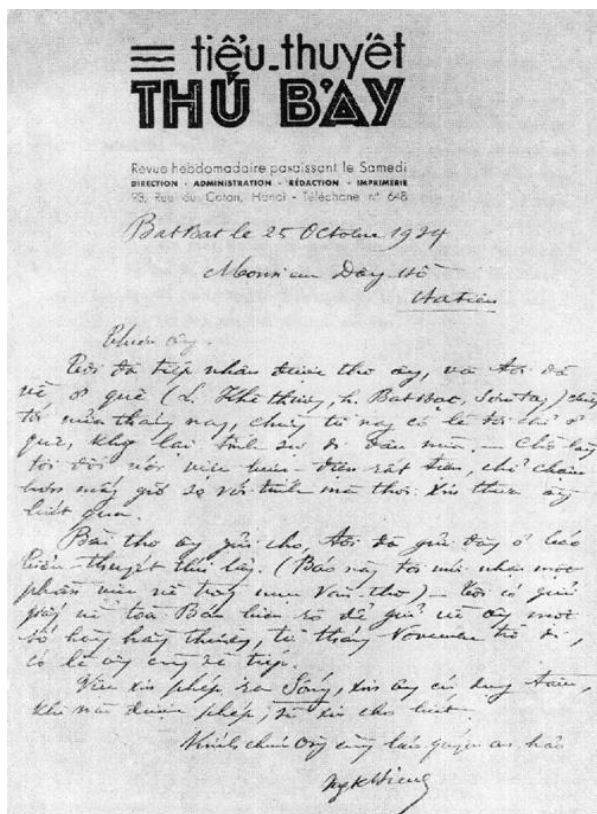 tiểu-thuyết
THỨ BẢY
Revue hebdomadaire paraissant le Samedi
DIRECTION - ADMINISTRATION - RÉDACTION - IMPRIMERIE
93, Rue du Coton, Hanoi - Téléphone n° 648
BatBat le 25 Octobre 1934
Monsieur Đông Hồ
Hatien
Thưa ông.
Tôi đã tiếp nhận được thơ ông, và tôi đã
về ở quê (L. Khê thượng, h. BatBat, Sơntây)
tôi tháng nay, từ nay có lẽ tôi chỉ ở
quê, không lại tính sự đi đâu nữa. — Chỗ làng
tôi đối với việc bưu-điện rất tiện, chỉ chậm
hơn mấy giờ so với tỉnh mà thôi. Xin thưa ông
biết qua.
Bài thơ ông gửi cho, tôi đã gửi đăng ở báo
tiểu-thuyết thứ bảy. (Báo này tôi mới nhận một
phần việc về trong mục Văn-thơ) — Tôi có gửi
giấy về toà Báo để gửi về ông một
số báo hàng, từ tháng Novembre trở đi,
có lẽ ông cũng sẽ tiếp.
Việc xin phép ra Sống, xin ông cứ dụng tâm,
khi nào được phép, xin cho biết.
Kính chúc ông cùng quyến an hảo
NgKHieu